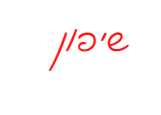 שיפון